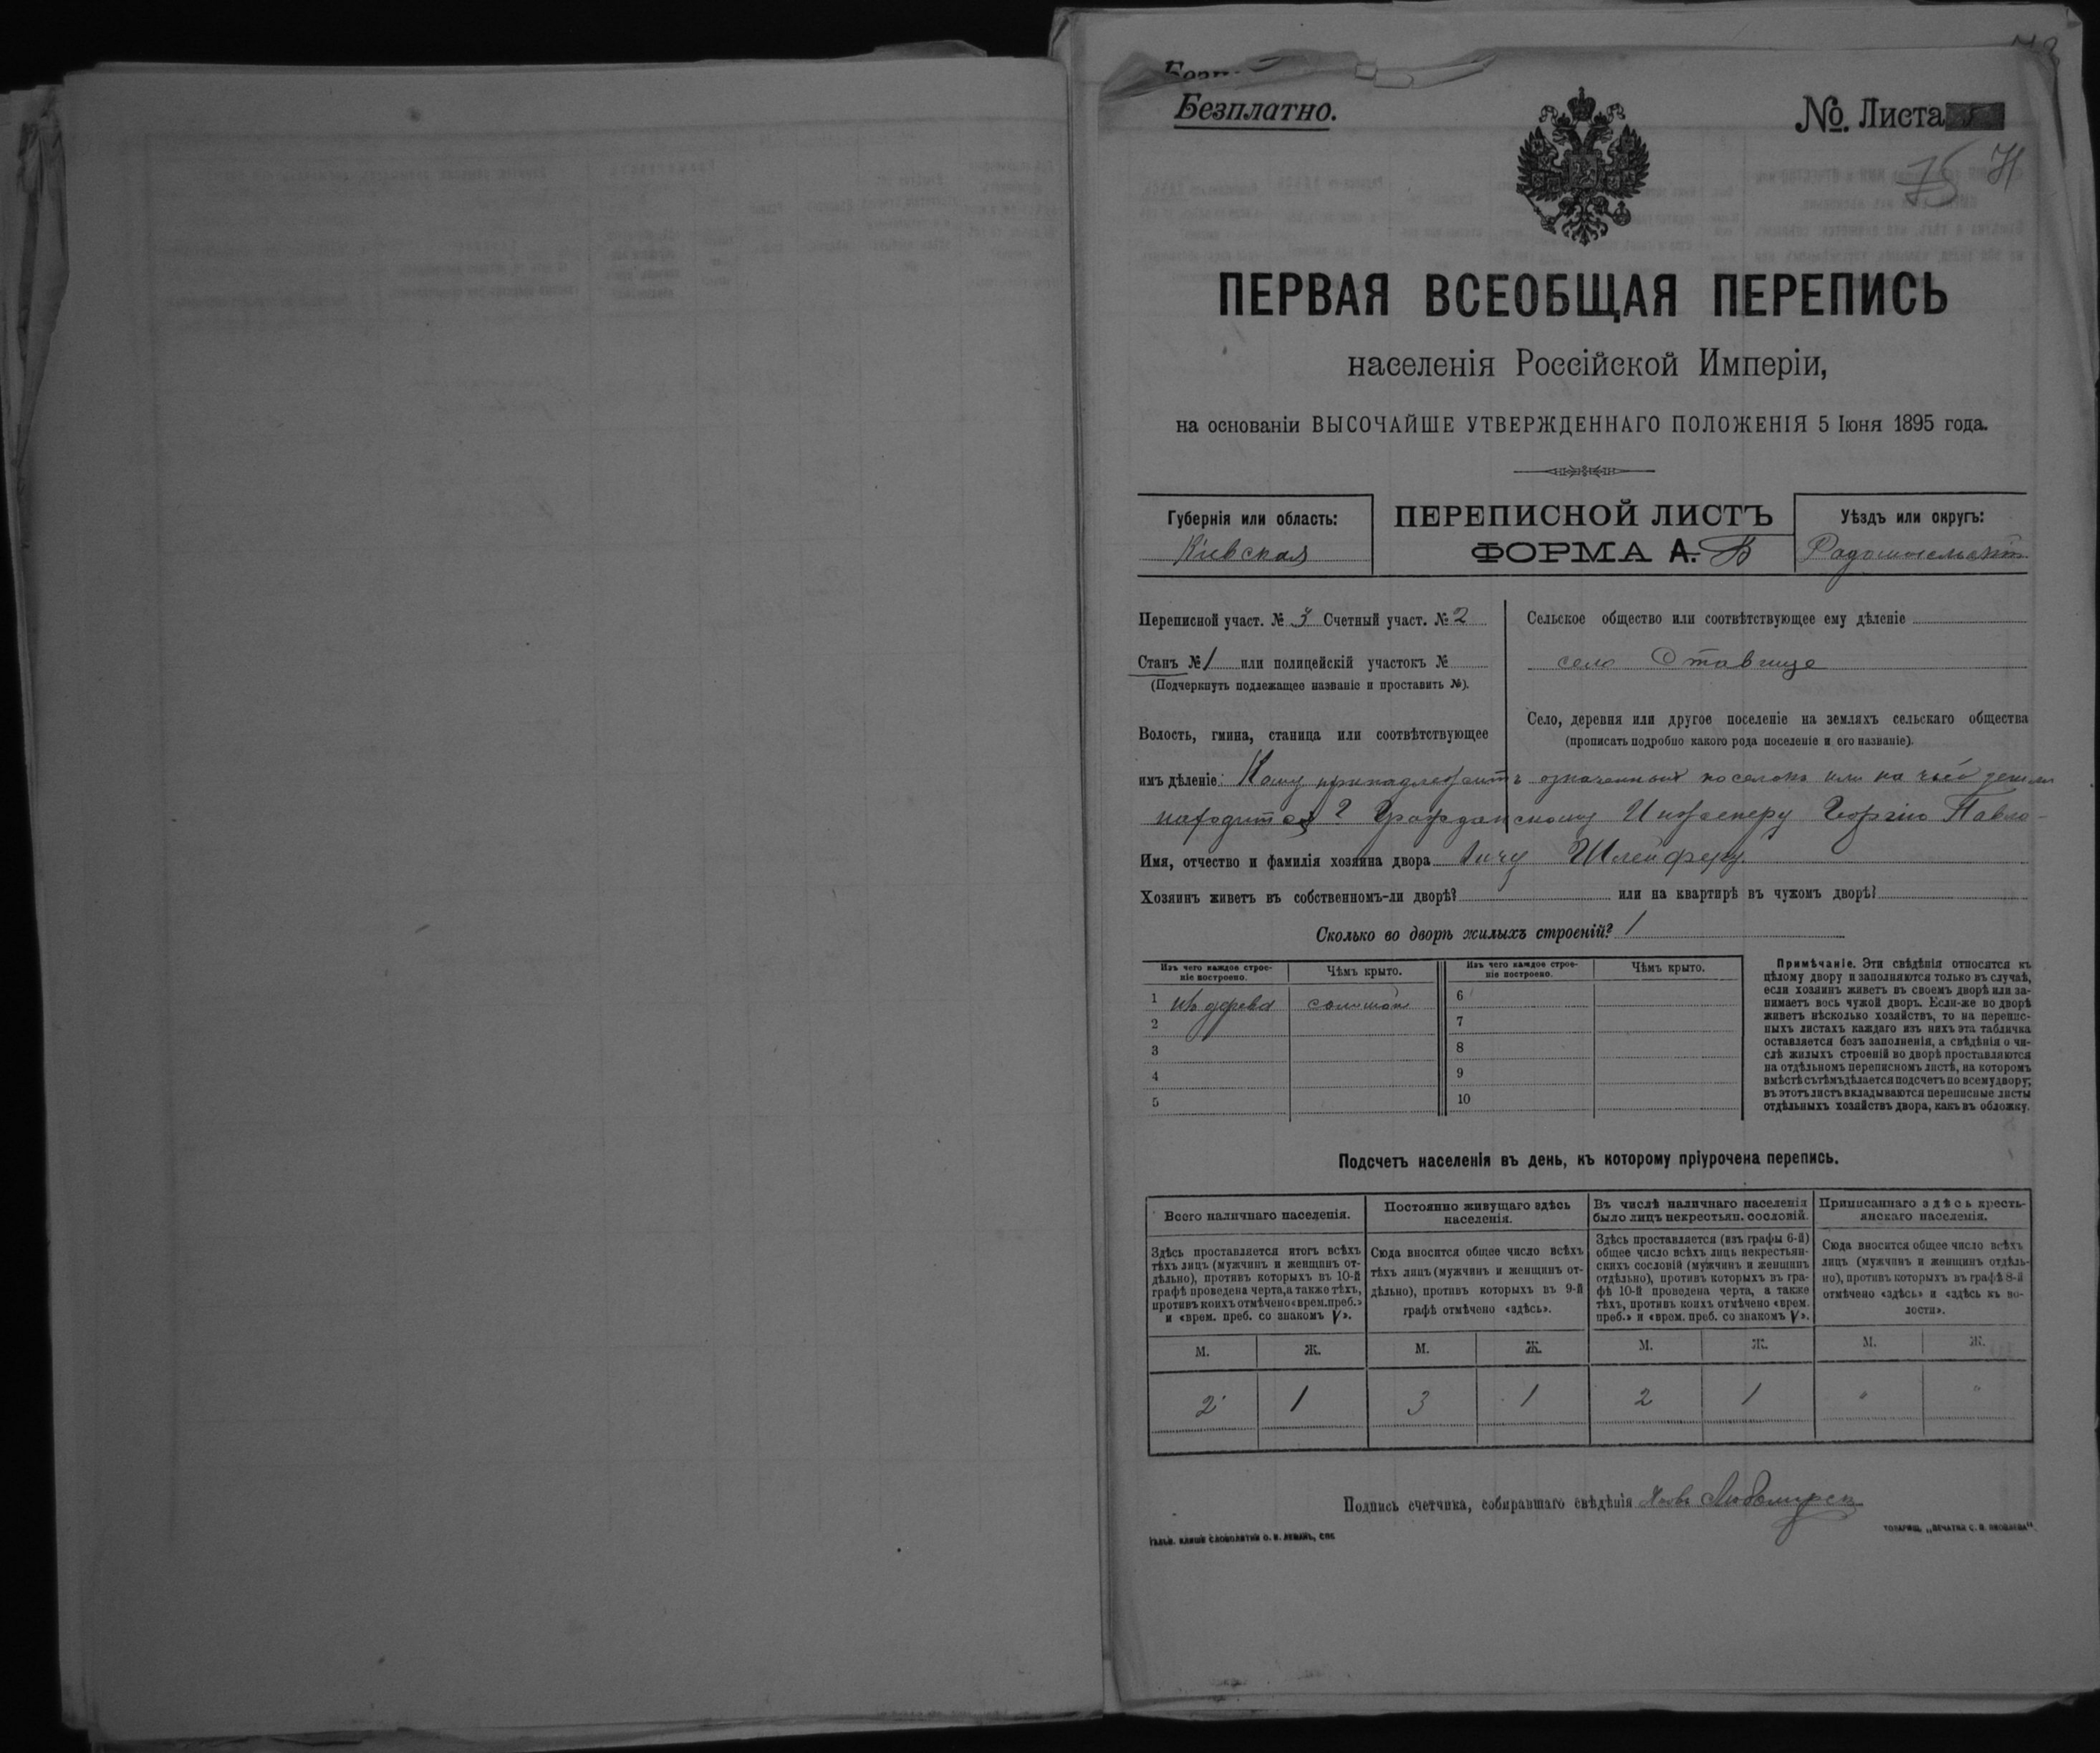 Безплатно.
№. Листа
75 71
ПЕРВАЯ ВСЕОБЩАЯ ПЕРЕПИСЬ
населенія Россійской Имперіи,
на основаніи ВЫСОЧАЙШЕ УТВЕРЖДЕННАГО ПОЛОЖЕНІЯ 5 Іюня 1895 года.
Губернія или область:
Кіевская
ПЕРЕПИСНОЙ ЛИСТЪ
ФОРМА А. Б
Уѣздъ или округъ:
Радомысльскій
Переписной участ. № 3 Счетный участ. № 2
Станъ № 1 или полицейскій участокъ №
(Подчеркнуть подлежащее названіе и проставить №).
Сельское общество или соотвѣтствующее ему дѣленіе
село Ставище
Волость, гмина, станица или соотвѣтствующее
Село, деревня или другое поселеніе на земляхъ сельскаго общества
(прописать подробно какого рода поселеніе и его названіе).
имъ дѣленіе: Кому принадлежитъ означенный поселокъ или на чьей земли
находится? Гражданскому Инженеру Георгію Павло-
Имя, отчество и фамилія хозяина двора вичу Шлейферу.
Хозяинъ живетъ въ собственномъ-ли дворѣ? или на квартирѣ въ чужомъ дворѣ?
Сколько во дворѣ жилыхъ строеній? 1
Изъ чего каждое строе-
ніе построено.
Чѣмъ крыто.
Изъ чего каждое строе-
ніе построено.
Чѣмъ крыто.
1 изъ дерева соломой 6
2 7
3 8
4 9
5 10
Примѣчаніе. Эти свѣдѣнія относятся къ
цѣлому двору и заполняются только въ случаѣ,
если хозяинъ живетъ въ своемъ дворѣ или за-
нимаетъ весь чужой дворъ. Если-же во дворѣ
живетъ нѣсколько хозяйствъ, то на перепис-
ныхъ листахъ каждаго изъ нихъ эта табличка
оставляется безъ заполненія, а свѣдѣнія о чи-
слѣ жилыхъ строеній во дворѣ проставляются
на отдѣльномъ переписномъ листѣ, на которомъ
вмѣстѣ съ тѣмъ дѣлается подсчетъ по всему двору;
въ этотъ листъ вкладываются переписные листы
отдѣльныхъ хозяйствъ двора, какъ въ обложку.
Подсчетъ населенія въ день, къ которому пріурочена перепись.
Всего наличнаго населенія.
Здѣсь проставляется итогъ всѣхъ
тѣхъ лицъ (мужчинъ и женщинъ от-
дѣльно), противъ которыхъ въ 10-й
графѣ проведена черта, а также тѣхъ,
противъ коихъ отмѣчено «врем. преб.»
и «врем. преб. со знакомъ V».
Постоянно живущаго здѣсь
населенія.
Сюда вносится общее число всѣхъ
тѣхъ лицъ (мужчинъ и женщинъ от-
дѣльно), противъ которыхъ въ 9-й
графѣ отмѣчено «здѣсь».
Въ числѣ наличнаго населенія
было лицъ некрестьян. сословій.
Здѣсь проставляется (изъ графы 6-й)
общее число всѣхъ лицъ некрестьян-
скихъ сословій (мужчинъ и женщинъ
отдѣльно), противъ которыхъ въ гра-
фѣ 10-й проведена черта, а также
тѣхъ, противъ коихъ отмѣчено «врем.
преб.» и «врем. преб. со знакомъ V».
Приписаннаго здѣсь кресть-
янскаго населенія.
Сюда вносится общее число всѣхъ
лицъ (мужчинъ и женщинъ отдѣль-
но), противъ которыхъ въ графѣ 8-й
отмѣчено «здѣсь» и «здѣсь къ во-
лости».
М. Ж. М. Ж. М. Ж. М. Ж.
2 1 3 1 2 1 " "
Подпись счетчика, собиравшаго свѣдѣнія